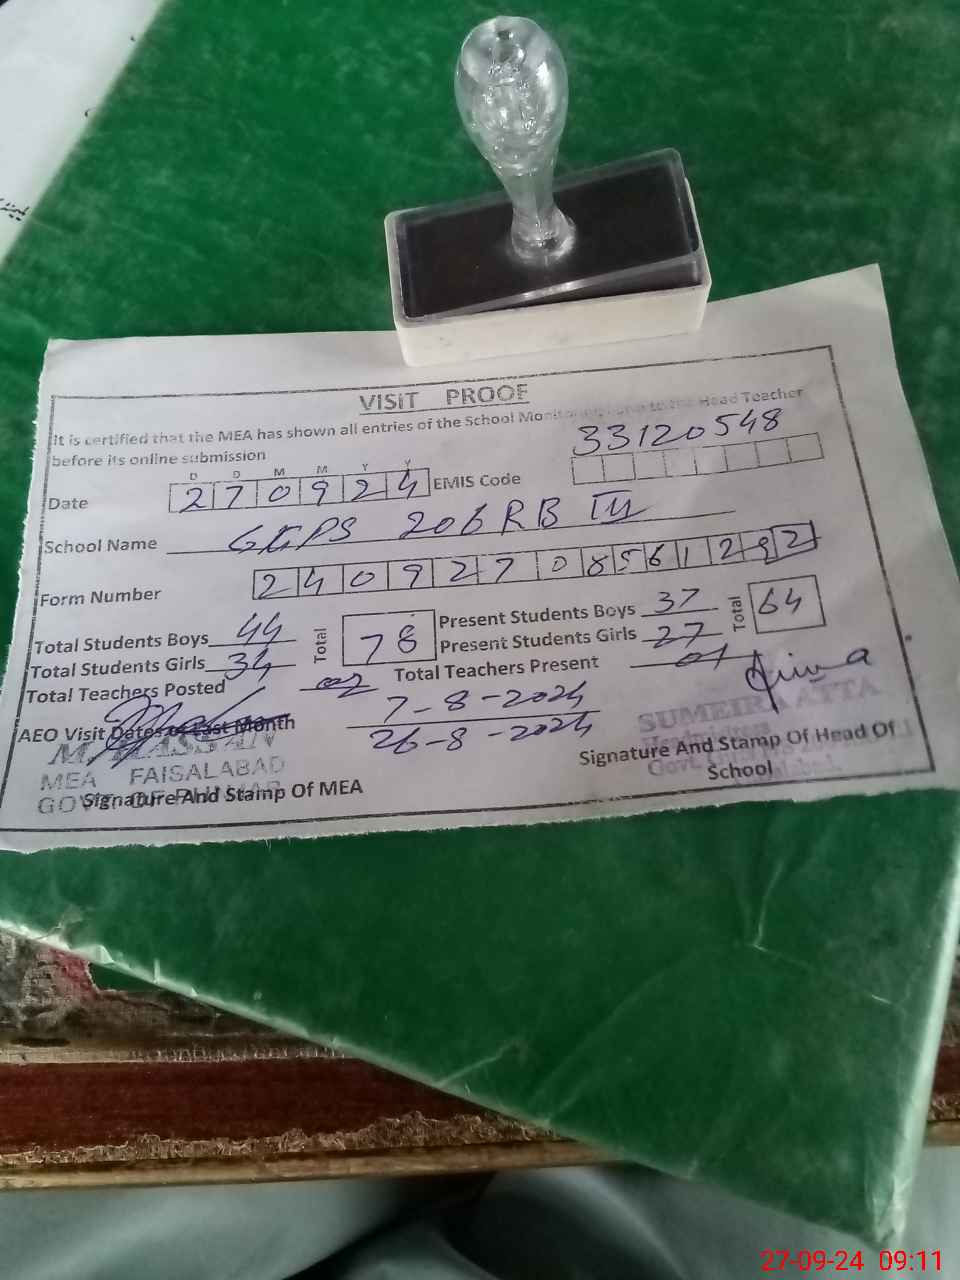 VISIT PROOF
It is certified that the MEA has shown all entries of the School Head Teacher
before its online submission
33120548
D D M M Y Y
Date 270924 EMIS Code
School Name GGPS 206 RB III
Form Number 2409270856129 2
Total Students Boys 44 Total 78 Present Students Boys 37 Total 64
Total Students Girls 34 Present Students Girls 27
Total Teachers Posted 02 Total Teachers Present 01
AEO Visit Dates of Last Month 7-8-2024
26-8-2024
M. HASSAN
MEA FAISALABAD
GOVT. OF
Signature And Stamp Of MEA
SUMEIRA ATTA
Signature And Stamp Of Head Of
School
27-09-24 09:11